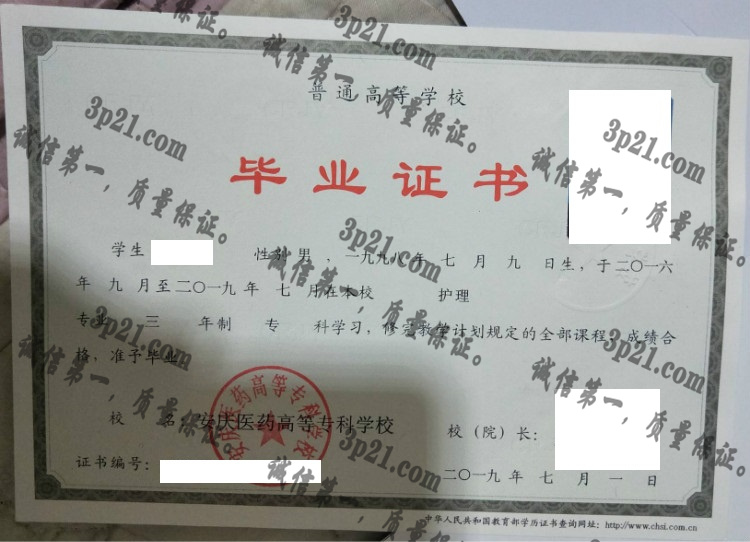 3p21.com
诚信第一，质量保证。
普通高等学校
毕业证书
学生 性别 男 ，一九九八年 七 月 九 日生，于二〇一六
年 九 月至二〇一九年 七 月在本校 护理
专业 三 年制 专 科学习，修完教学计划规定的全部课程，成绩合
格，准予毕业。
校 名：安庆医药高等专科学校
校（院）长：
证书编号：
二〇一九 年 七 月 一 日
中华人民共和国教育部学历证书查询网址：http://www.chsi.com.cn
安庆医药高等专科学校
3p21.com
诚信第一，质量保证。
3p21.com
诚信第一，质量保证。
3p21.com
诚信第一，质量保证。
3p21.com
诚信第一，质量保证。
3p21.com
诚信第一，质量保证。
3p21.com
诚信第一，质量保证。
3p21.com
诚信第一，质量保证。